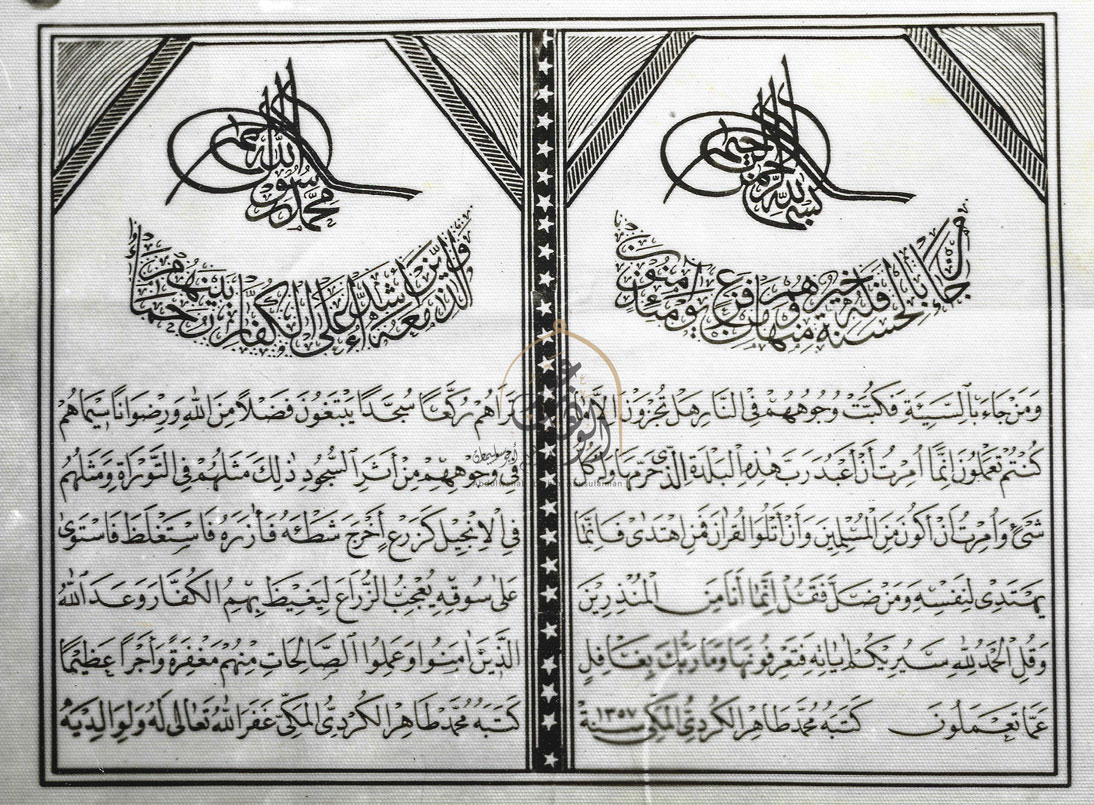 بسم الله الرحمن الرحيم
من جاء بالحسنة فله خير منها وهم من فزع يومئذ آمنون
وَمَنْ جَاءَ بِالسَّيِّئَةِ فَكُبَّتْ وُجُوهُهُمْ فِي النَّارِ هَلْ تُجْزَوْنَ اِلَّا مَا
كُنْتُمْ تَعْمَلُونَ اِنَّمَا اُمِرْتُ أَنْ أَعْبُدَ رَبَّ هٰذِهِ الْبَلْدَةِ الَّذِي حَرَّمَهَا وَلَهُ كُلُّ
شَيْءٍ وَاُمِرْتُ أَنْ أَكُونَ مِنَ الْمُسْلِمِينَ وَأَنْ أَتْلُوَا الْقُرْاٰنَ فَمَنِ اهْتَدٰى فَاِنَّمَا
يَهْتَدِي لِنَفْسِهِ وَمَنْ ضَلَّ فَقُلْ اِنَّمَا أَنَا مِنَ الْمُنْذِرِينَ
وَقُلِ الْحَمْدُ لِلّٰهِ سَيُرِيكُمْ اٰيَاتِهِ فَتَعْرِفُونَهَا وَمَا رَبُّكَ بِغَافِلٍ
عَمَّا تَعْمَلُونَ كَتَبَهُ مُحَمَّد طَاهِر الْكُرْدِيُّ الْمَكِّي سنة ١٣٥٧
محمد رسول الله
والذين معه أشداء على الكفار رحماء بينهم
تَرَاهُمْ رُكَّعًا سُجَّدًا يَبْتَغُونَ فَضْلًا مِنَ اللهِ وَرِضْوَانًا سِيمَاهُمْ
فِي وُجُوهِهِمْ مِنْ أَثَرِ السُّجُودِ ذٰلِكَ مَثَلُهُمْ فِي التَّوْرَاةِ وَمَثَلُهُمْ
فِي الْاِنْجِيلِ كَزَرْعٍ أَخْرَجَ شَطْئَهُ فَاٰزَرَهُ فَاسْتَغْلَظَ فَاسْتَوٰى
عَلٰى سُوقِهِ يُعْجِبُ الزُّرَّاعَ لِيَغِيظَ بِهِمُ الْكُفَّارَ وَعَدَ اللهُ
الَّذِينَ اٰمَنُوا وَعَمِلُوا الصَّالِحَاتِ مِنْهُمْ مَغْفِرَةً وَأَجْرًا عَظِيمًا
كَتَبَهُ مُحَمَّد طَاهِر الْكُرْدِيُّ الْمَكِّي غَفَرَ اللهُ تَعَالٰى لَهُ وَلِوَالِدَيْهِ